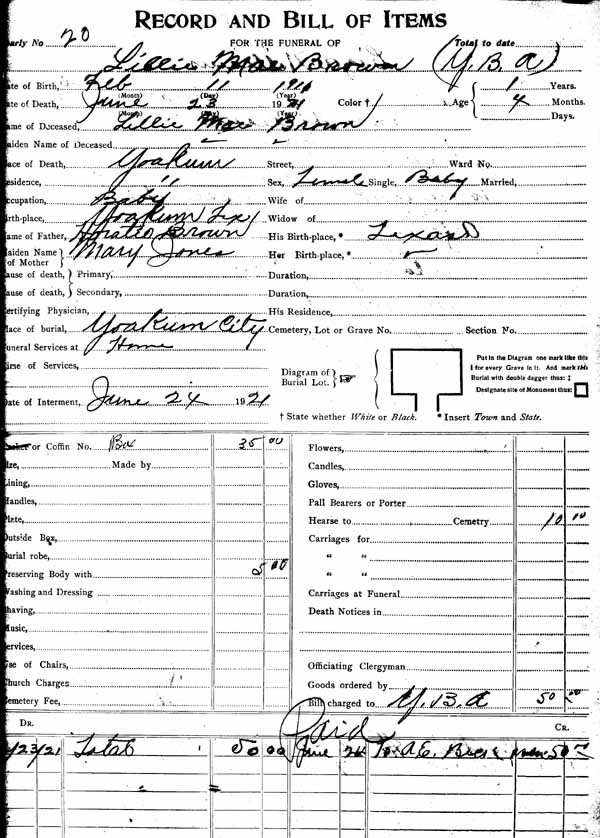 RECORD AND BILL OF ITEMS
early No 20 FOR THE FUNERAL OF (Total to date
Lillie Mae Brown (Y.B.A)
ate of Birth, Feb 11 19 1 Years.
(Month) (Day) (Year)
ate of Death, June 23 1921 Color † Age 4 Months.
(Month) (Day) (Year) Days.
ame of Deceased, Lillie Mae Brown
aiden Name of Deceased
lace of Death, Yoakum Street, Ward No.
esidence, " Sex, Female Single, Baby Married,
ccupation, Baby Wife of
irth-place, Yoakum Tex Widow of
ame of Father, Horatio Brown His Birth-place, * Texas
aiden Name of Mother Mary Jones Her Birth-place, *
ause of death, Primary, Duration,
ause of death, Secondary, Duration,
ertifying Physician, His Residence,
lace of burial, Yoakum City Cemetery, Lot or Grave No. Section No.
uneral Services at Home
ime of Services,
Diagram of Burial Lot.
Put in the Diagram one mark like this
I for every Grave in it. And mark this
Burial with double dagger thus: ‡
Designate site of Monument thus:
ate of Interment, June 24 1921
† State whether White or Black. * Insert Town and State.
or Coffin No. Box 35 00 Flowers,
ize, Made by Candles,
ining, Gloves,
andles, Pall Bearers or Porter
late, Hearse to Cemetry 10 00
utside Box, Carriages for
urial robe, " "
reserving Body with 5 00 " "
ashing and Dressing Carriages at Funeral
having, Death Notices in
usic,
ervices,
se of Chairs, Officiating Clergyman
hurch Charges Goods ordered by
emetery Fee, Bill charged to Y.B.A 50 00
DR. Paid CR.
/23/21 Total 50 00 June 24 To A.E. 50